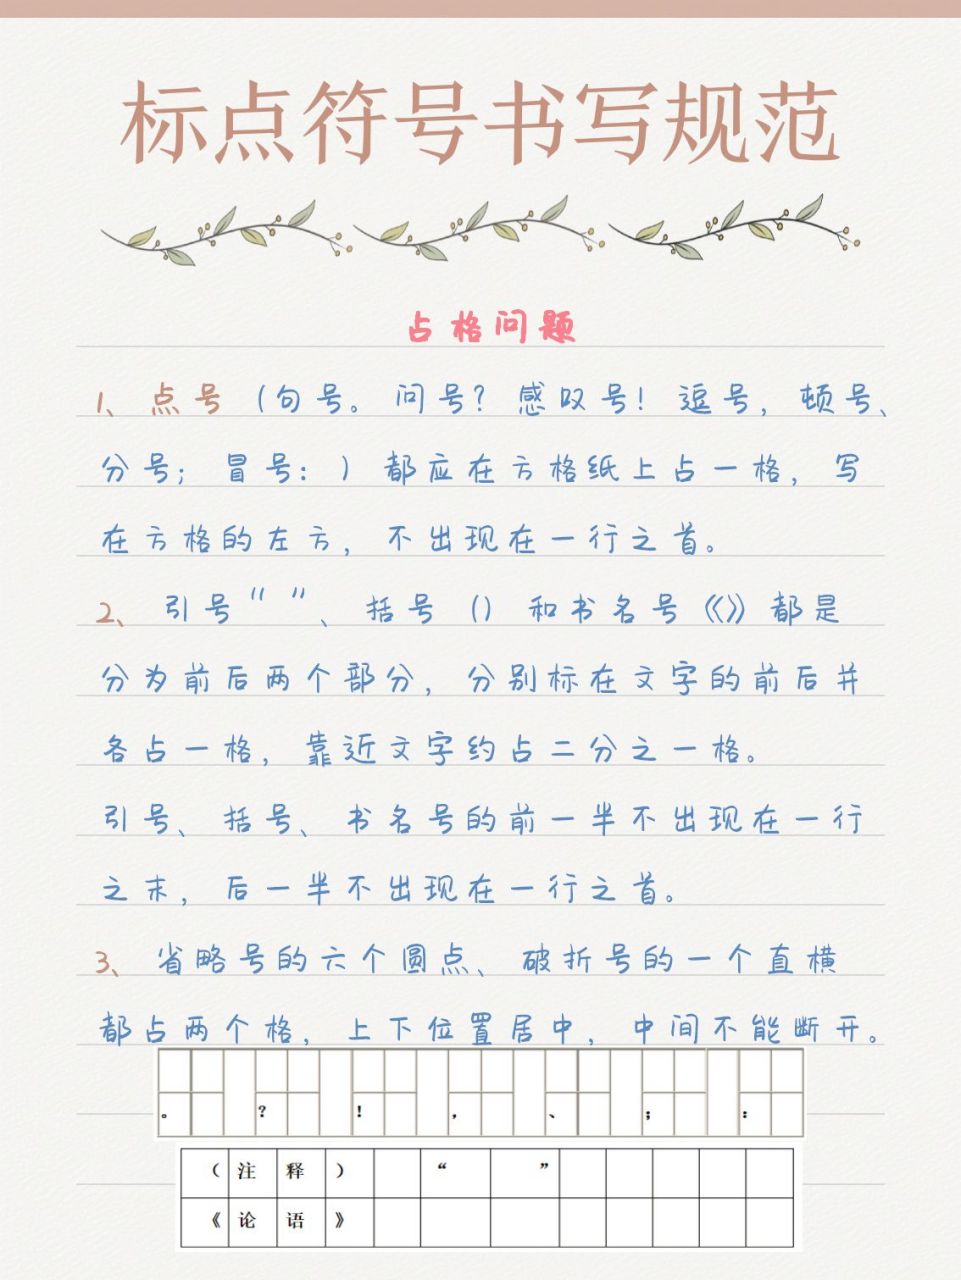 标点符号书写规范
占格问题
1、点号（句号。问号？感叹号！逗号，顿号、
分号；冒号：）都应在方格纸上占一格，写
在方格的左方，不出现在一行之首。
2、引号“”、括号（）和书名号《》都是
分为前后两个部分，分别标在文字的前后并
各占一格，靠近文字约占二分之一格。
引号、括号、书名号的前一半不出现在一行
之末，后一半不出现在一行之首。
3、省略号的六个圆点、破折号的一个直横
都占两个格，上下位置居中，中间不能断开。
。 ？ ！ ， 、 ； ：
（ 注 释 ） “ ”
《 论 语 》